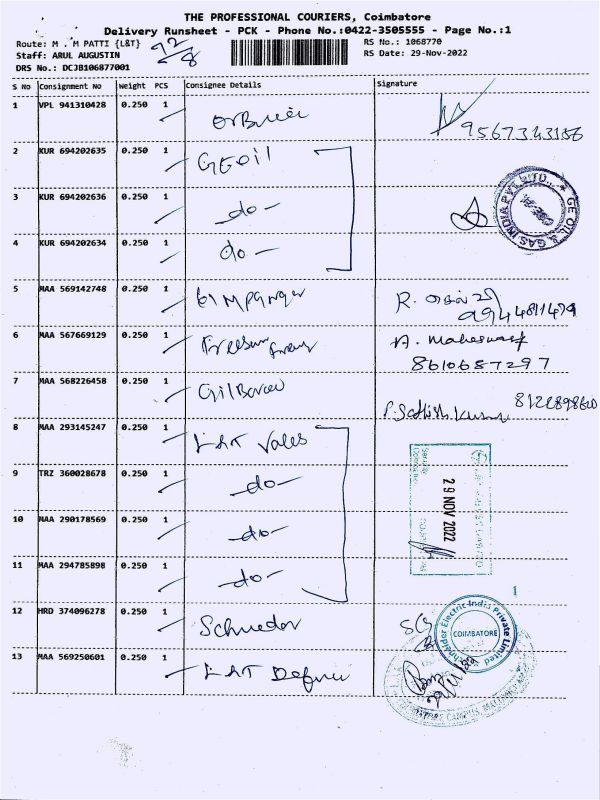 THE PROFESSIONAL COURIERS, Coimbatore
Delivery Runsheet - PCK - Phone No.:0422-3505555 - Page No.:1
Route: M . M PATTI {L&T} 92/8 RS No.: 1068770
Staff: ARUL AUGUSTIN RS Date: 29-Nov-2022
DRS No.: DCJB106877001
S No Consignment No Weight PCS Consignee Details Signature
1 VPL 941310428 0.250 1
9567343186
2 KUR 694202635 0.250 1 GEOil
3 KUR 694202636 0.250 1 -do-
GE OIL & GAS INDIA PVT LTD.,
4 KUR 694202634 0.250 1 do-
5 MAA 569142748 0.250 1 R.
9944811479
6 MAA 567669129 0.250 1 A. Maheswari
8610687297
7 MAA 568226458 0.250 1 Gilbarco
P. Sathish Kumar
8 MAA 293145247 0.250 1 L&T Vales
9 TRZ 360028678 0.250 1 -do-
29 NOV 2022
10 MAA 290178569 0.250 1 -do-
11 MAA 294785898 0.250 1 -do-
12 HRD 374096278 0.250 1 Schneder
Schneider Electric India Private Limited
COIMBATORE
13 MAA 569250601 0.250 1 L&T Defence
COIMBATORE CAMPUS,